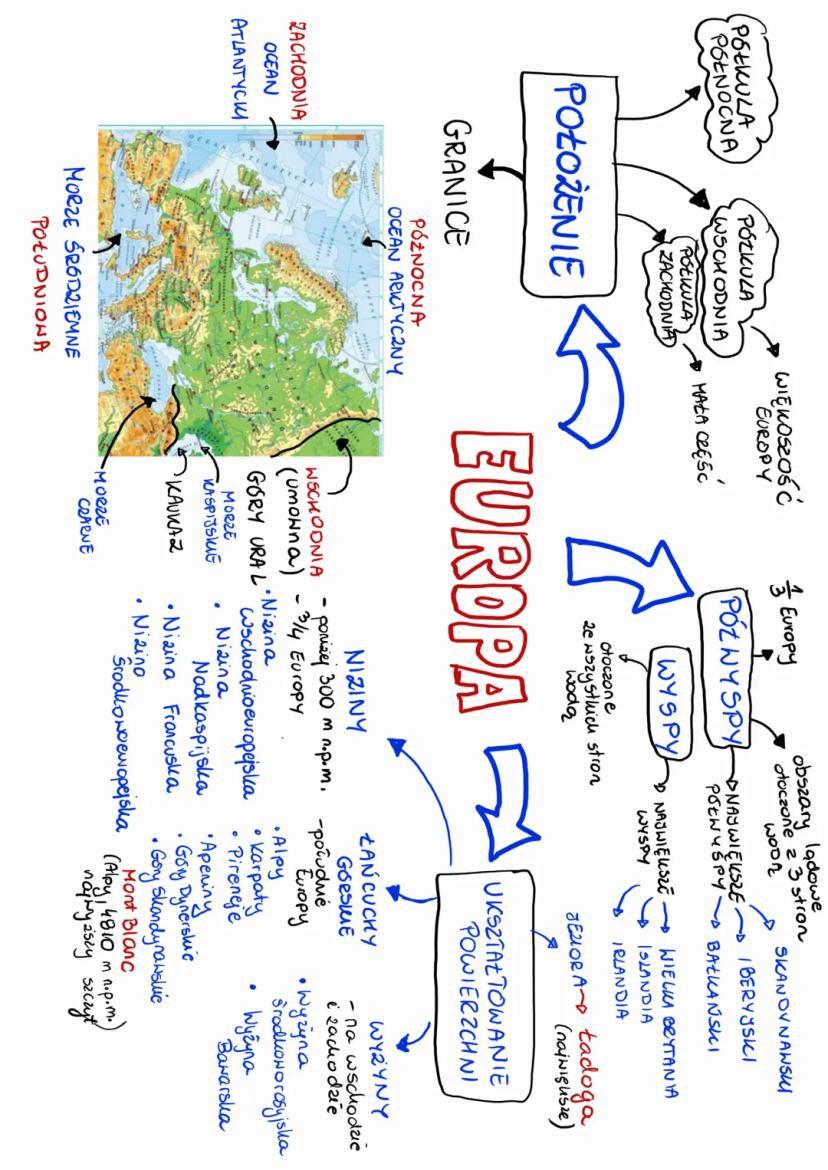 EUROPA
POŁOŻENIE
PÓŁKULA
PÓŁNOCNA
PÓŁKULA
WSCHODNIA
WIĘKOSZOŚĆ
EUROPY
PÓŁKULA
ZACHODNIA
MAŁA CZĘŚĆ
GRANICE
PÓŁNOCNA
OCEAN ARKTYCZNY
ZACHODNIA
OCEAN
ATLANTYCKI
MORZE ŚRÓDZIEMNE
POŁUDNIOWA
WSCHODNIA
(umowna)
GÓRY URAL
MORZE
KASPIJSKIE
KAUKAZ
MORZE
CZARNE
PÓŁWYSPY
1/3 Europy
obszary lądowe
otoczone z 3 stron
wodą
NAJWIĘKSZE
PÓŁWYSPY
SKANDYNAWSKI
IBERYJSKI
BAŁKAŃSKI
WYSPY
otoczone
ze wszystkich stron
wodą
NAJWIĘKSZE
WYSPY
WIELKA BRYTANIA
ISLANDIA
IRLANDIA
UKSZTAŁTOWANIE
POWIERZCHNI
JEZIORA → Ładoga
(największe)
NIZINY
- poniżej 300 m n.p.m.
- 3/4 EUROPY
• Nizina
Wschodnioeuropejska
• Nizina
Nadkaspijska
• Nizina Francuska
• Nizino
Środkowoeuropejska
ŁAŃCUCHY
GÓRSKIE
- południe
Europy
• Alpy
• Karpaty
• Pireneje
• Apeniny
• Góry Dynarskie
• Góry Skandynawskie
Mont Blanc
(Alpy, 4810 m n.p.m.)
najwyższy szczyt
WYŻYNY
- na wschodzie
i zachodzie
• Wyżyna
Środkoworosyjska
• Wyżyna
Bawarska